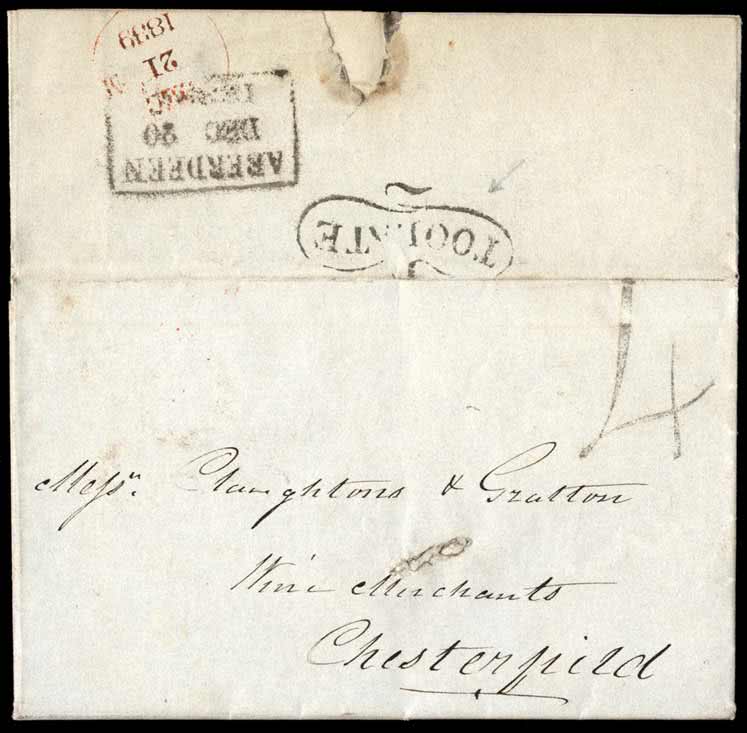 1839
21
ABERDEEN
DEC 20
TOO LATE
4
Messrs. Claughtons & Gratton
Wine Merchants
Chesterfield